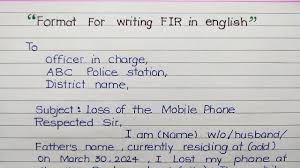 "Format For writing FIR in english"
To
Officer in charge,
ABC Police station,
District name,
Subject : Loss of the Mobile Phone
Respected Sir,
I am (Name) w/o/husband/
Fathers name , currently residing at (add)
on March 30, 2024 , I Lost my phone at